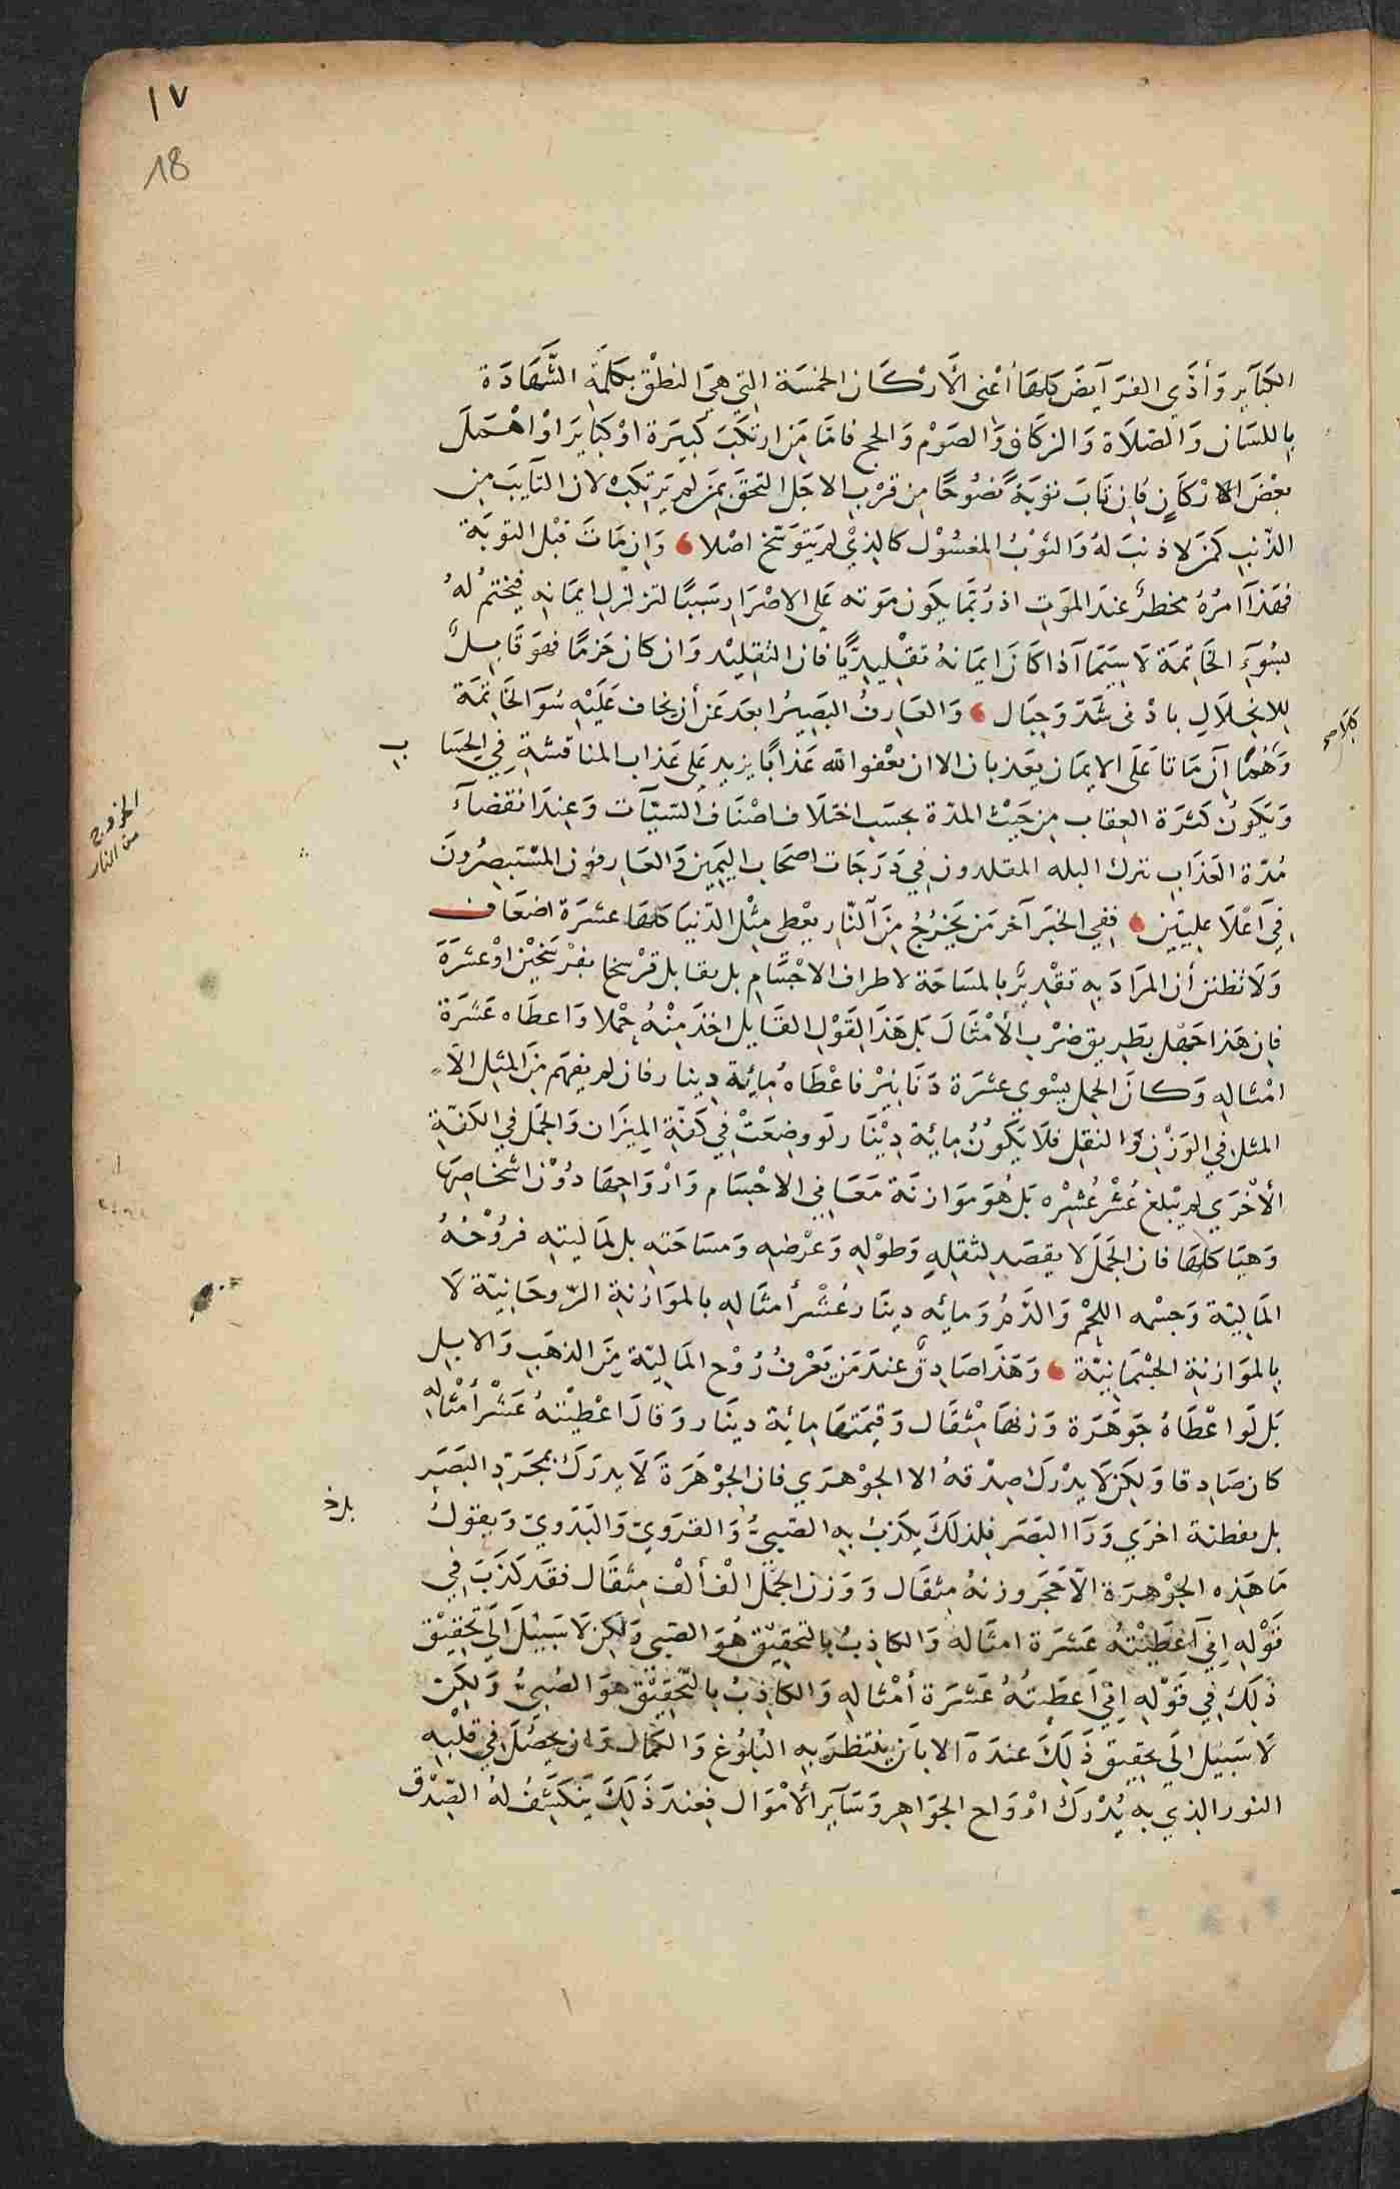 ١٧
18
الكبَآيرِ وَأدَّي الفرَآيضَ كلهَا أعْني الأرْكَان الخمسَة التِي هيَ النطْق بكلمَةِ الشَّهَادَة
بِاللسَان وَالصَلاَة وَالزكَاة وَالصَوْم وَالحج فامَّا مَن ارتكَبَ كبيرَة اوْ كبَايرَ اوْ اهْمَلَ
بعْضَ الارْكَانِ فاِن تَابَ توبَةً نصُوحًا مِن قرْبِ الاجَل التحَقَ بمَن لم يَرتكبْ لان التَايبَ مِن
الذنبِ كمَن لا ذنبَ لهُ وَالثوْبُ المغسُوْل كالذِيْ لم يَتوَسَّخ اصْلا وَان مَاتَ قبْل التوبَة
فهَذا امرُهُ مخطرٌ عندَ الموَتِ اذ رُبّمَا يكَون مَوته عَلي الاصْرَارِ سَببًا لتزلزلِ ايمَانِهِ فيختمُ لهُ
بسُوءِ الخَاتِمَة لاَ سِيَمَا اذا كانَ ايمَانهُ تقلِيدِيًّا فان التقلِيْد وَان كان جَزمًا فهوَ قَابِلٌ
لِلاِنحِلاَلِ بادْني شَكّ وَخيَال وَالعَارِفُ البَصِيرُ ابعَد عَن أن يخاف عَليْهِ سُوَ الخَاتمَة
وَهُمَا اِن مَاتا عَلَى الايمَان يعَذبَان الا ان يعْفو الله عَذابًا يزيد عَلى عَذاب المناقشةِ فِي الحِسَا
ب
وَيَكوُن كثرَة العِقاب مِن حَيْث المدّة بحسَبِ اختلَاف اصْنَاف السَيّآت وَعِندَ انقضَآءِ
مُدّة العَذَابِ تنزل البله المقلدون فِي دَرَجَات اصحَاب اليَمِين وَالعَارفوُن المسْتبصِرُونَ
فِي اَعْلَا عِليّين ففِي الخبَر آخر مَن يَخرُجُ مِنَ النّارِ يعْطي مثْل الدّنيَا كلهَا عشرَة اضعَاف
وَلا تظنن أن المرَاد بِه تقدِيرُ بالمسَاحَة لاطراف الاجْسَام بل يقابل فرْسخا بفرْسَخين اوْ عشرَة
فاِن هَذا جَهْل بطرِيق ضرْبِ الأمْثَالَ بَل هَذا القَوْل القَايل اخذَ مِنْهُ جمْلا وَاعطَاه عَشرَة
امْثاله وَكانَ الجمل يسْوي عشرَة دَنَانِيرْ فاعْطَاهُ مِائِة دِينار فان لم يفهَم مِنَ المثِل الاّ
المثل في الوَزْن وَالثقِل فلَا يَكُونُ مِائِة دِيْنَار لَو وضِعَتْ فِي كفّةِ المِيزَان وَالجمَل فِي الكفّةِ
الأخْرَي لم يبْلغ عُشْرَ عُشِرْه بَل هُوَ مَوَازنَة مَعَاني الاجْسَام وَارْوَاحِهَا دُوْن اشخاصِهَا
وَهيَا كلهَا فان الجمَلَ لا يقصَد لثقلِهِ وَطوْلِهِ وَعَرْضِهِ وَمسَاحَتهِ بل لمَاليتهِ فرُوْحُهُ
المَاليّة وَجسْمه اللحْم وَالدّمُ وَمايِه دِينَار عُشْر أمثَالهِ بالموَازنةِ الرّوحَانِيّة لَا
بِالموَازنةِ الجسْمَانِيّة وَهَذا صَادِقٌ عندَ مَن يَعْرفُ رُوْح المَاليّة مِنَ الذهَبِ وَالابِل
بَل لَو اعْطَاهُ جَوهَرَة وَزنهَا مِثْقَال وَقِيمَتهَا مائة دينَار وَقالَ اعْطيْتهُ عَشْر أمْثَالِهِ
كان صَادِقا وَلكِن لَا يدْرك صِدْقهُ الا الجوْهرَي فان الجوْهَرَة لَا يدرَك بمجَرّدِ البَصَر
بل بفطنة اخرَي وَرَا البَصَر فلذلكَ يكَذبُ بهِ الصّبيُّ وَالقرَويّ وَالبَدَويّ وَيقوُل
مَا هَذِه الجوْهرَة الاّ حَجَر وزنهُ مِثقَال وَوَزن الجمَل الْف ألْف مِثقَال فقَد كذَبَ فِي
قوْلهِ اِني اَعْطيْتهُ عَشرَة امثَاله وَالكاذِبُ بالتحقِيْق هُوَ الصَبي وَلكِن لَا سَبيْلَ الَي تحقِيْق
ذلِكَ فِي قوْلِهِ اِنّي اَعطَيتُهُ عَشرَة أمْثالِهِ وَالكاذِبُ بِالتّحقِيْق هُوَ الصّبيُّ وَلكِن
لَا سَبيْل الَي تحقِيق ذَلِكَ عندَهَ الا باَن ينتظرَ بِهِ البُلوُغ وَالكمَال وَان يحصُلَ فِي قلْبِهِ
النور الذِي به يُدْرك ارْوَاح الجوَاهِر وَسَآيرِ الأمْوَال فعِندَ ذَلكَ يَنكشِفُ لهُ الصِدْق
الخروج
من النار